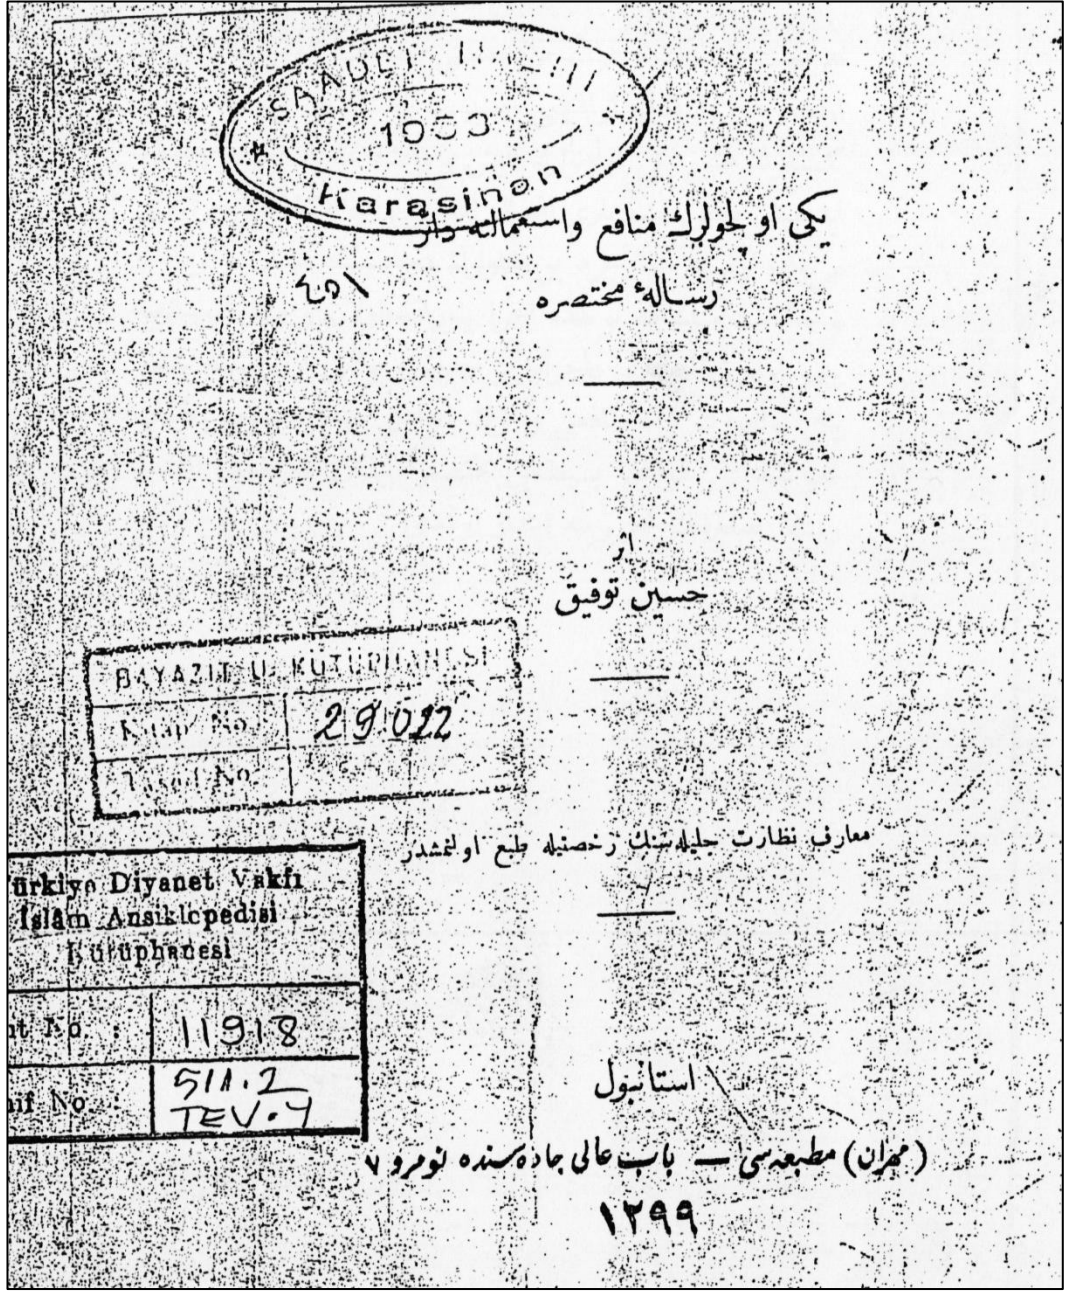 SAADET
1933
Karasinan
یكی اولچولرك منافع واستعمالنه دائر
٤٥١
رسالۀ مختصره
اثر
حسین توفیق
BAYAZIT U. KÜTÜPHANESİ
Kitap No. 29022
Tasnif No.
معارف نظارت جلیله‌سنك رخصتیله طبع اولنمشدر
Türkiye Diyanet Vakfı
İslâm Ansiklopedisi
Kütüphanesi
No. : 11918
No. : 511.2
TEV.Y
استانبول
(مهران) مطبعه‌سی — باب عالی جاده‌سنده نومرو ٧
١٢٩٩